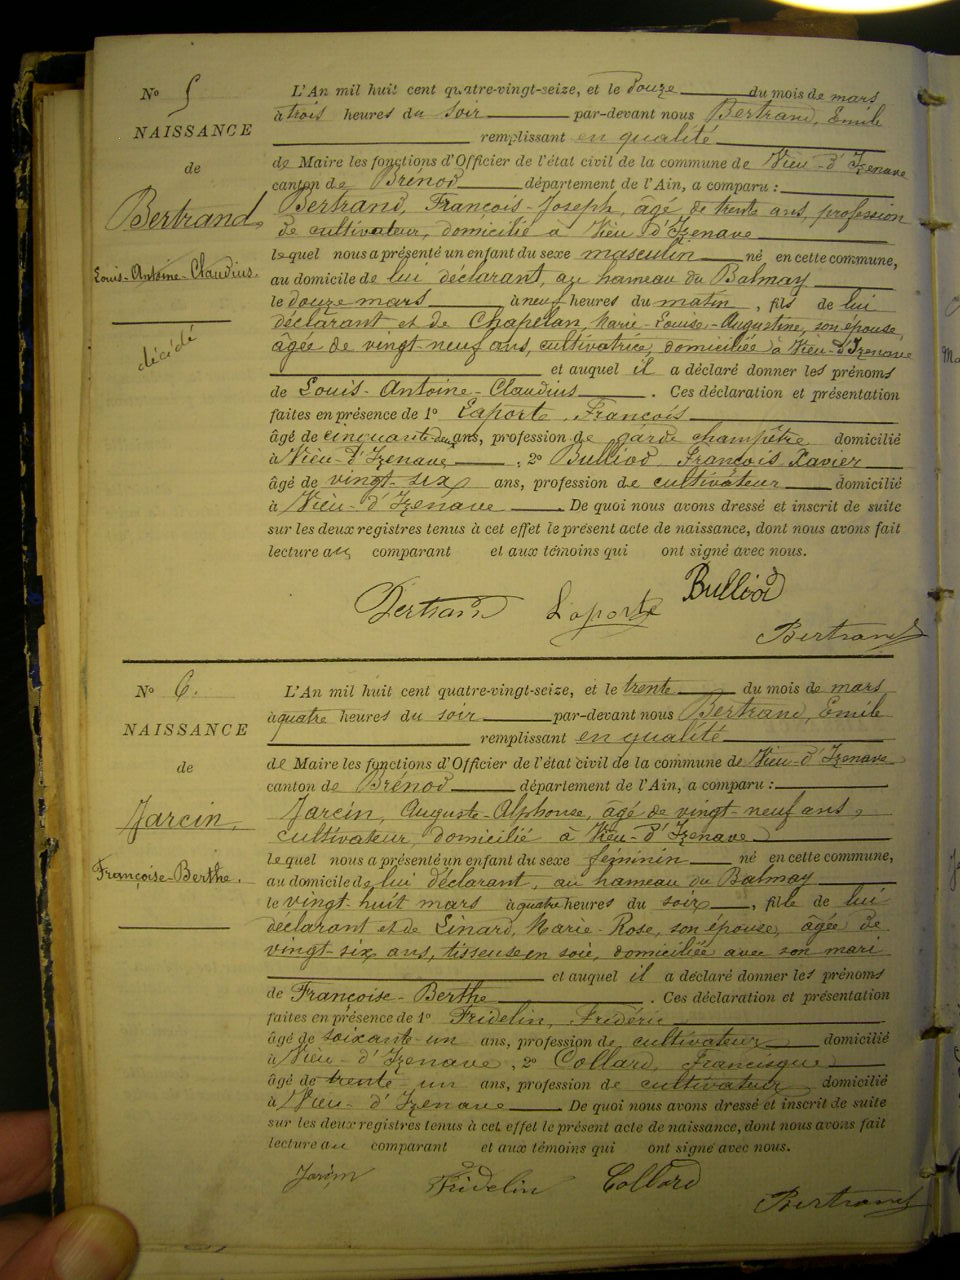 No 5
NAISSANCE
de
Bertrand,
Louis-Antoine-Claudius.
décédé
L'An mil huit cent quatre-vingt-seize, et le douze du mois de mars
à trois heures du soir par-devant nous Bertrand, Emile
remplissant en qualité
de Maire les fonctions d'Officier de l'état civil de la commune de Vieu-d'Izenave
canton de Brénod département de l'Ain, a comparu :
Bertrand, François-Joseph, âgé de trente ans, profession
de cultivateur, domicilié à Vieu d'Izenave
lequel nous a présenté un enfant du sexe masculin né en cette commune,
au domicile de lui déclarant, au hameau du Balmay
le douze mars à neuf heures du matin, fils de lui
déclarant et de Chapelan, Marie-Louise-Augustine, son épouse,
âgée de vingt-neuf ans, cultivatrice, domiciliée à Vieu-d'Izenave
et auquel il a déclaré donner les prénoms
de Louis-Antoine-Claudius. Ces déclaration et présentation
faites en présence de 1o Laporte, François
âgé de cinquante-deux ans, profession de garde champêtre domicilié
à Vieu-d'Izenave, 2o Bulliod, François Xavier
âgé de vingt-six ans, profession de cultivateur domicilié
à Vieu-d'Izenave. De quoi nous avons dressé et inscrit de suite
sur les deux registres tenus à cet effet le présent acte de naissance, dont nous avons fait
lecture au comparant et aux témoins qui ont signé avec nous.
Bertrand Laporte Bulliod
Bertrand
No 6.
NAISSANCE
de
Jarcin,
Françoise-Berthe.
L'An mil huit cent quatre-vingt-seize, et le trente du mois de mars
à quatre heures du soir par-devant nous Bertrand, Emile
remplissant en qualité
de Maire les fonctions d'Officier de l'état civil de la commune de Vieu-d'Izenave
canton de Brénod département de l'Ain, a comparu :
Jarcin, Auguste-Alphonse, âgé de vingt-neuf ans,
cultivateur, domicilié à Vieu-d'Izenave
lequel nous a présenté un enfant du sexe féminin né en cette commune,
au domicile de lui déclarant, au hameau du Balmay
le vingt-huit mars à quatre heures du soir, fille de lui
déclarant et de Linard, Marie-Rose, son épouse, âgée de
vingt-six ans, tisseuse en soie, domiciliée avec son mari
et auquel il a déclaré donner les prénoms
de Françoise-Berthe. Ces déclaration et présentation
faites en présence de 1o Fridelin, Frédéric
âgé de soixante-un ans, profession de cultivateur domicilié
à Vieu-d'Izenave, 2o Collard, Francisque
âgé de trente-un ans, profession de cultivateur domicilié
à Vieu-d'Izenave. De quoi nous avons dressé et inscrit de suite
sur les deux registres tenus à cet effet le présent acte de naissance, dont nous avons fait
lecture au comparant et aux témoins qui ont signé avec nous.
Jarcin Fridelin Collard
Bertrand